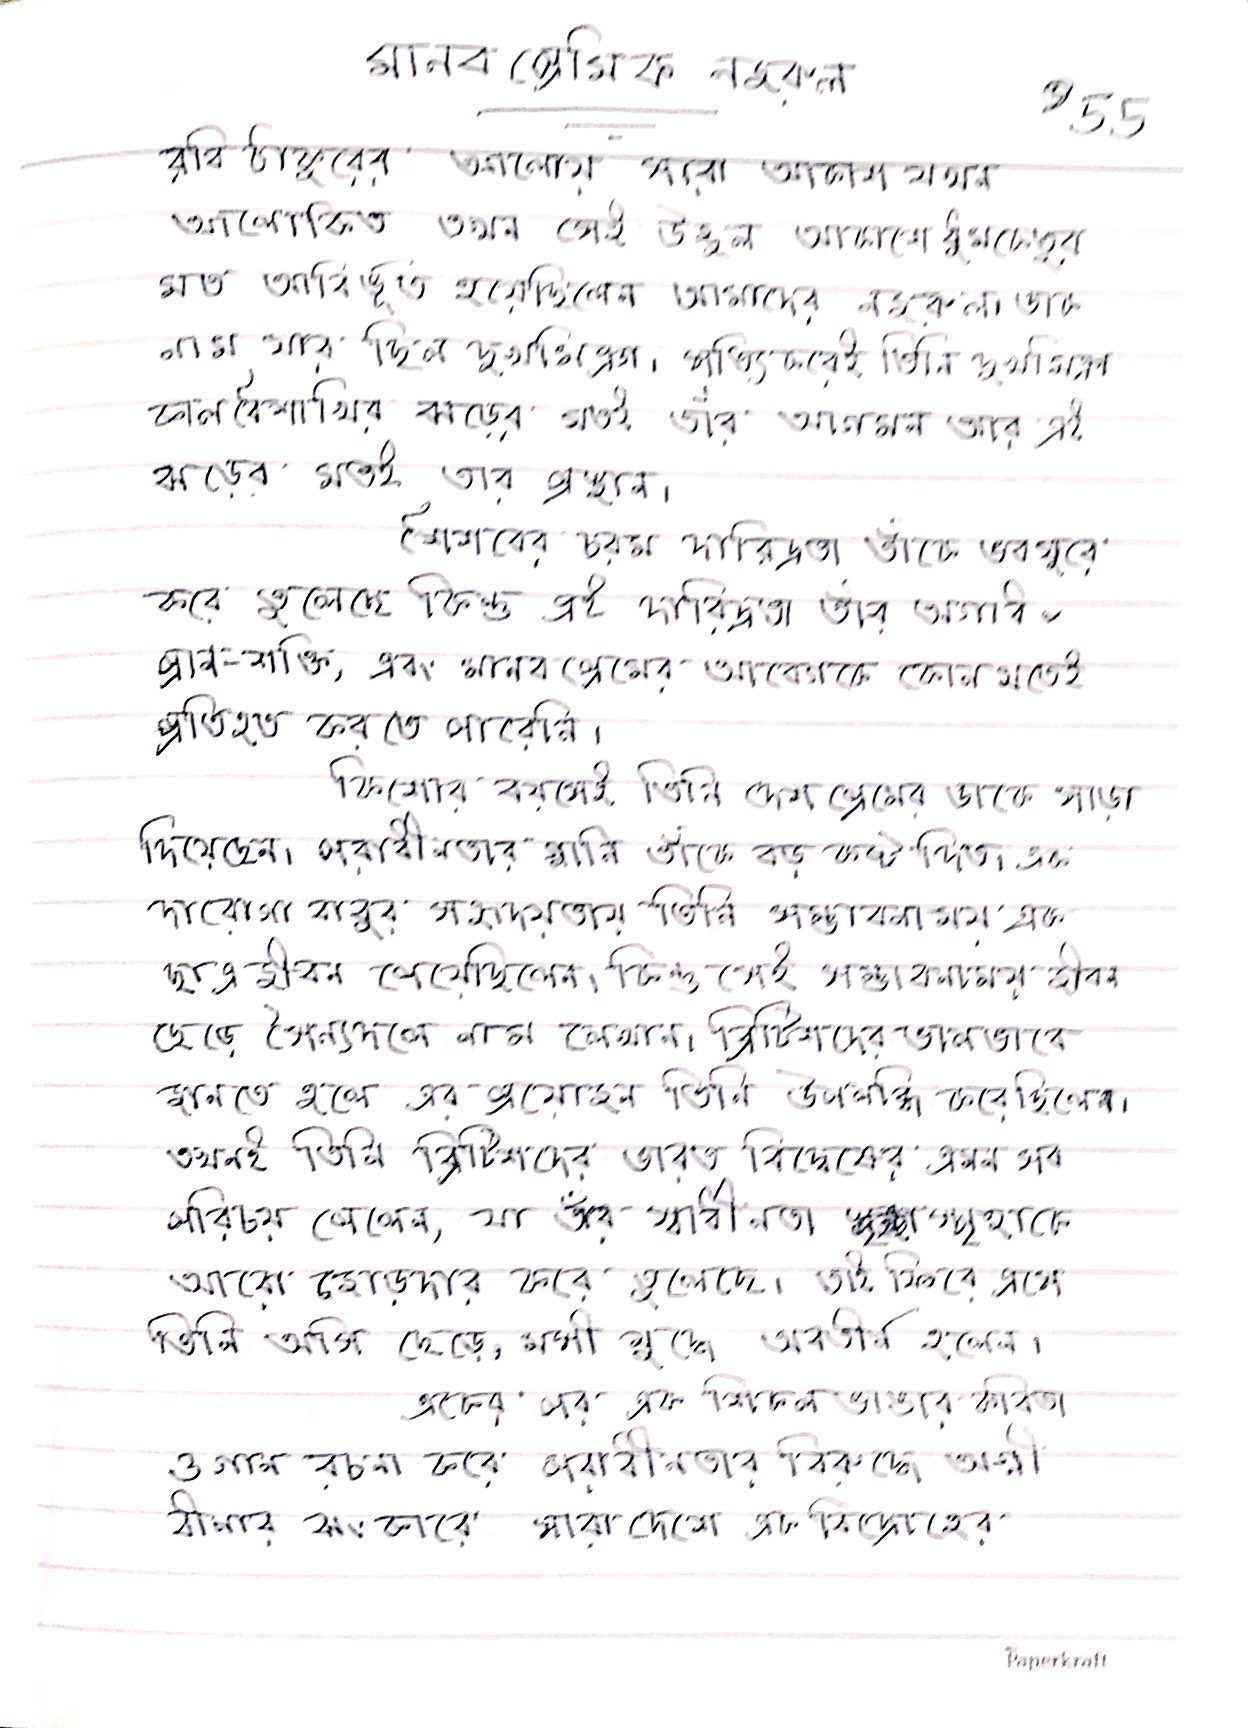 মানব প্রেমিক নজরুল
55
রবি ঠাকুরের আলোয় সারা আকাশ যখন
আলোকিত তখন সেই উজ্জ্বল আকাশে ধুমকেতুর
মত আবির্ভূত হয়েছিলেন আমাদের নজরুল। ডাক
নাম যার ছিল দুখুমিঞা। সত্যিকরেই তিনি
কালবৈশাখির ঝড়ের মতই তাঁর আগমন আর এই
ঝড়ের মতই তার প্রস্থান।
শৈশবের চরম দারিদ্রতা তাঁকে ভবঘুরে
করে তুলেছে কিন্তু এই দারিদ্রতা তাঁর অগাধ
প্রান-শক্তি, এবং মানব প্রেমের আবেগকে কোনমতেই
প্রতিহত করতে পারেনি।
কিশোর বয়সেই তিনি দেশপ্রেমের ডাকে সাড়া
দিয়েছেন। পরাধীনতার গ্লানি তাঁকে বড় কষ্ট দিত। এক
দারোগা বাবুর সহৃদয়তায় তিনি সম্ভাবনাময় এক
ছাত্রজীবন পেয়েছিলেন। কিন্তু সেই সম্ভাবনাময় জীবন
ছেড়ে সৈন্যদলে নাম লেখান। ব্রিটিশদের ভালভাবে
জানতে হলে এর প্রয়োজন তিনি উপলব্ধি করেছিলেন।
তখনই তিনি ব্রিটিশদের ভারত বিদ্বেষের এমন সব
পরিচয় পেলেন, যা তাঁর স্বাধীনতা স্পৃহাকে
আরো জোড়দার করে তুলেছে। তাই ফিরে এসে
তিনি অসি ছেড়ে, মসী যুদ্ধে অবতীর্ন হলেন।
একের পর এক শিকল ভাঙার কবিতা
ও গান রচনা করে পরাধীনতার বিরুদ্ধে অগ্নী
বীনার ঝংকারে সারা দেশে এক বিদ্রোহের
Paperkraft